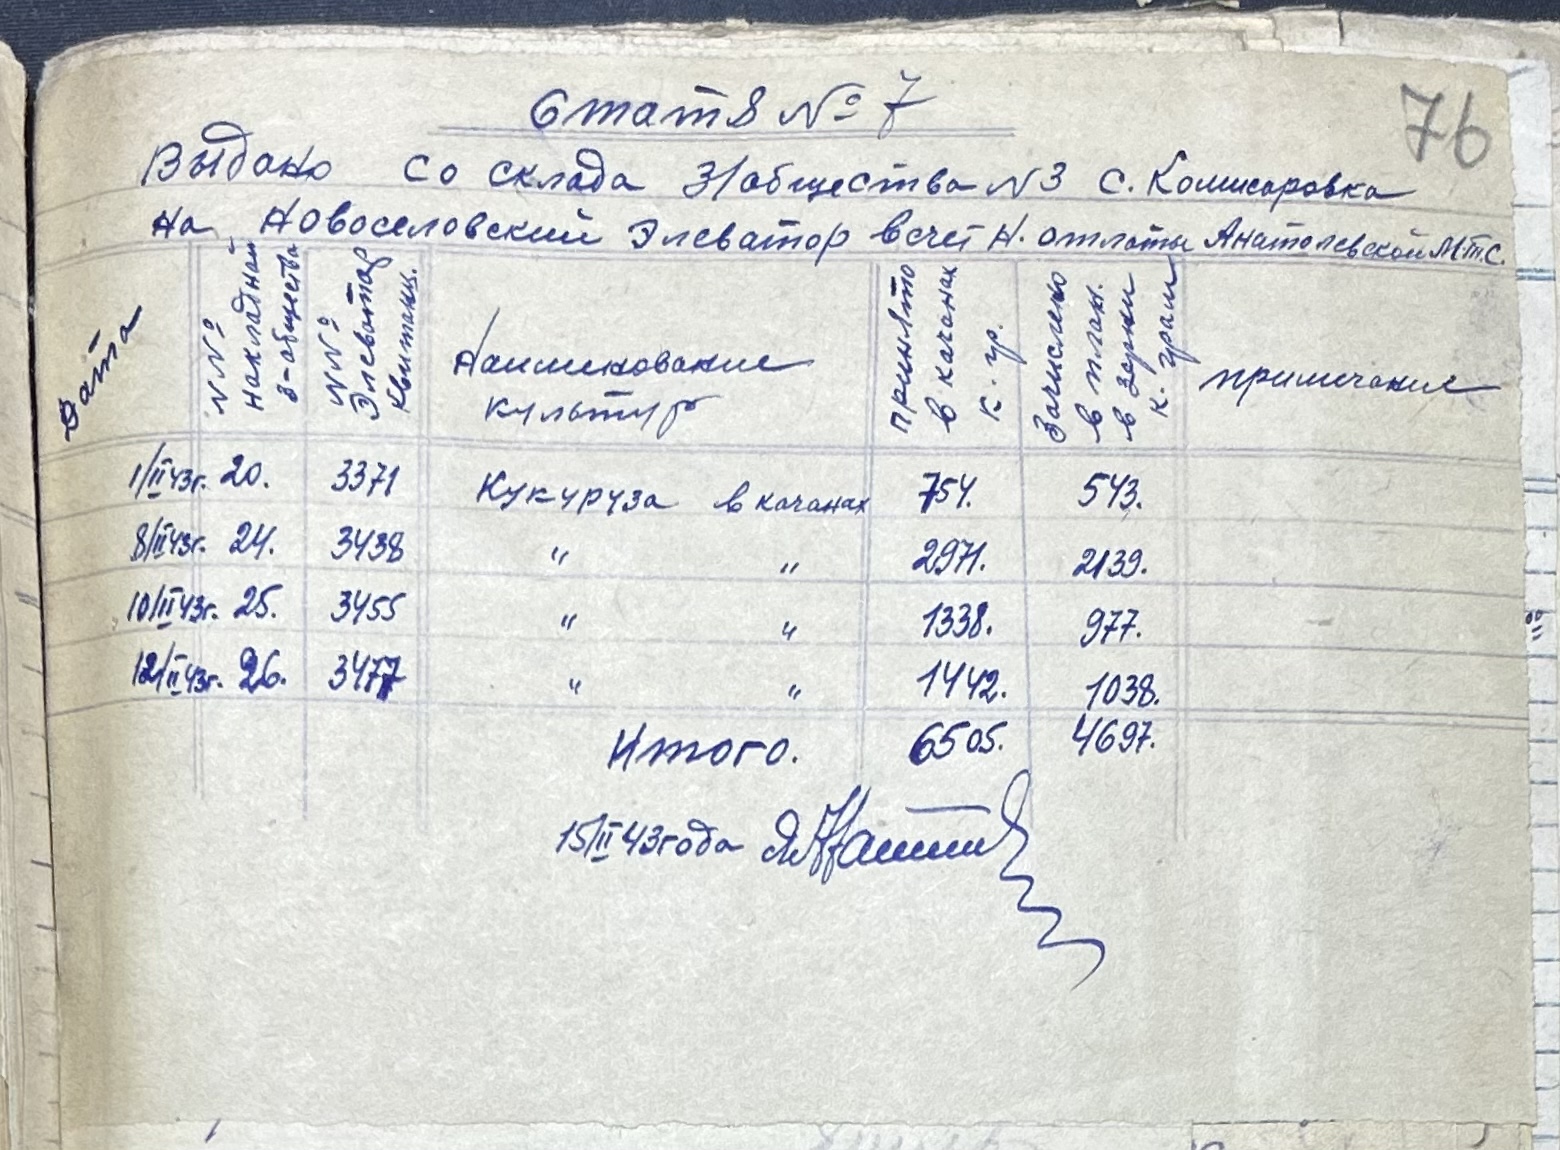 76
Статя № 7
Выдано со склада З/общества № 3 с. Комисаровка
на Новоселовский Элеватор в счет Н. оплаты Анатолевской М.Т.С.
Дата
№№ накладной з-общества
№№ Элеватор Квитанц.
Наименование культур
принято в качанах к. гр.
Зачислено в план. в зерни к. грам
примечание
1/II 43г. 20. 3371 Кукуруза в качанах 754. 543.
8/II 43г. 24. 3438 " " 2971. 2139.
10/II 43г. 25. 3455 " " 1338. 977.
12/II 43г. 26. 3477 " " 1442. 1038.
Итого. 6505. 4697.
15/II 43 года